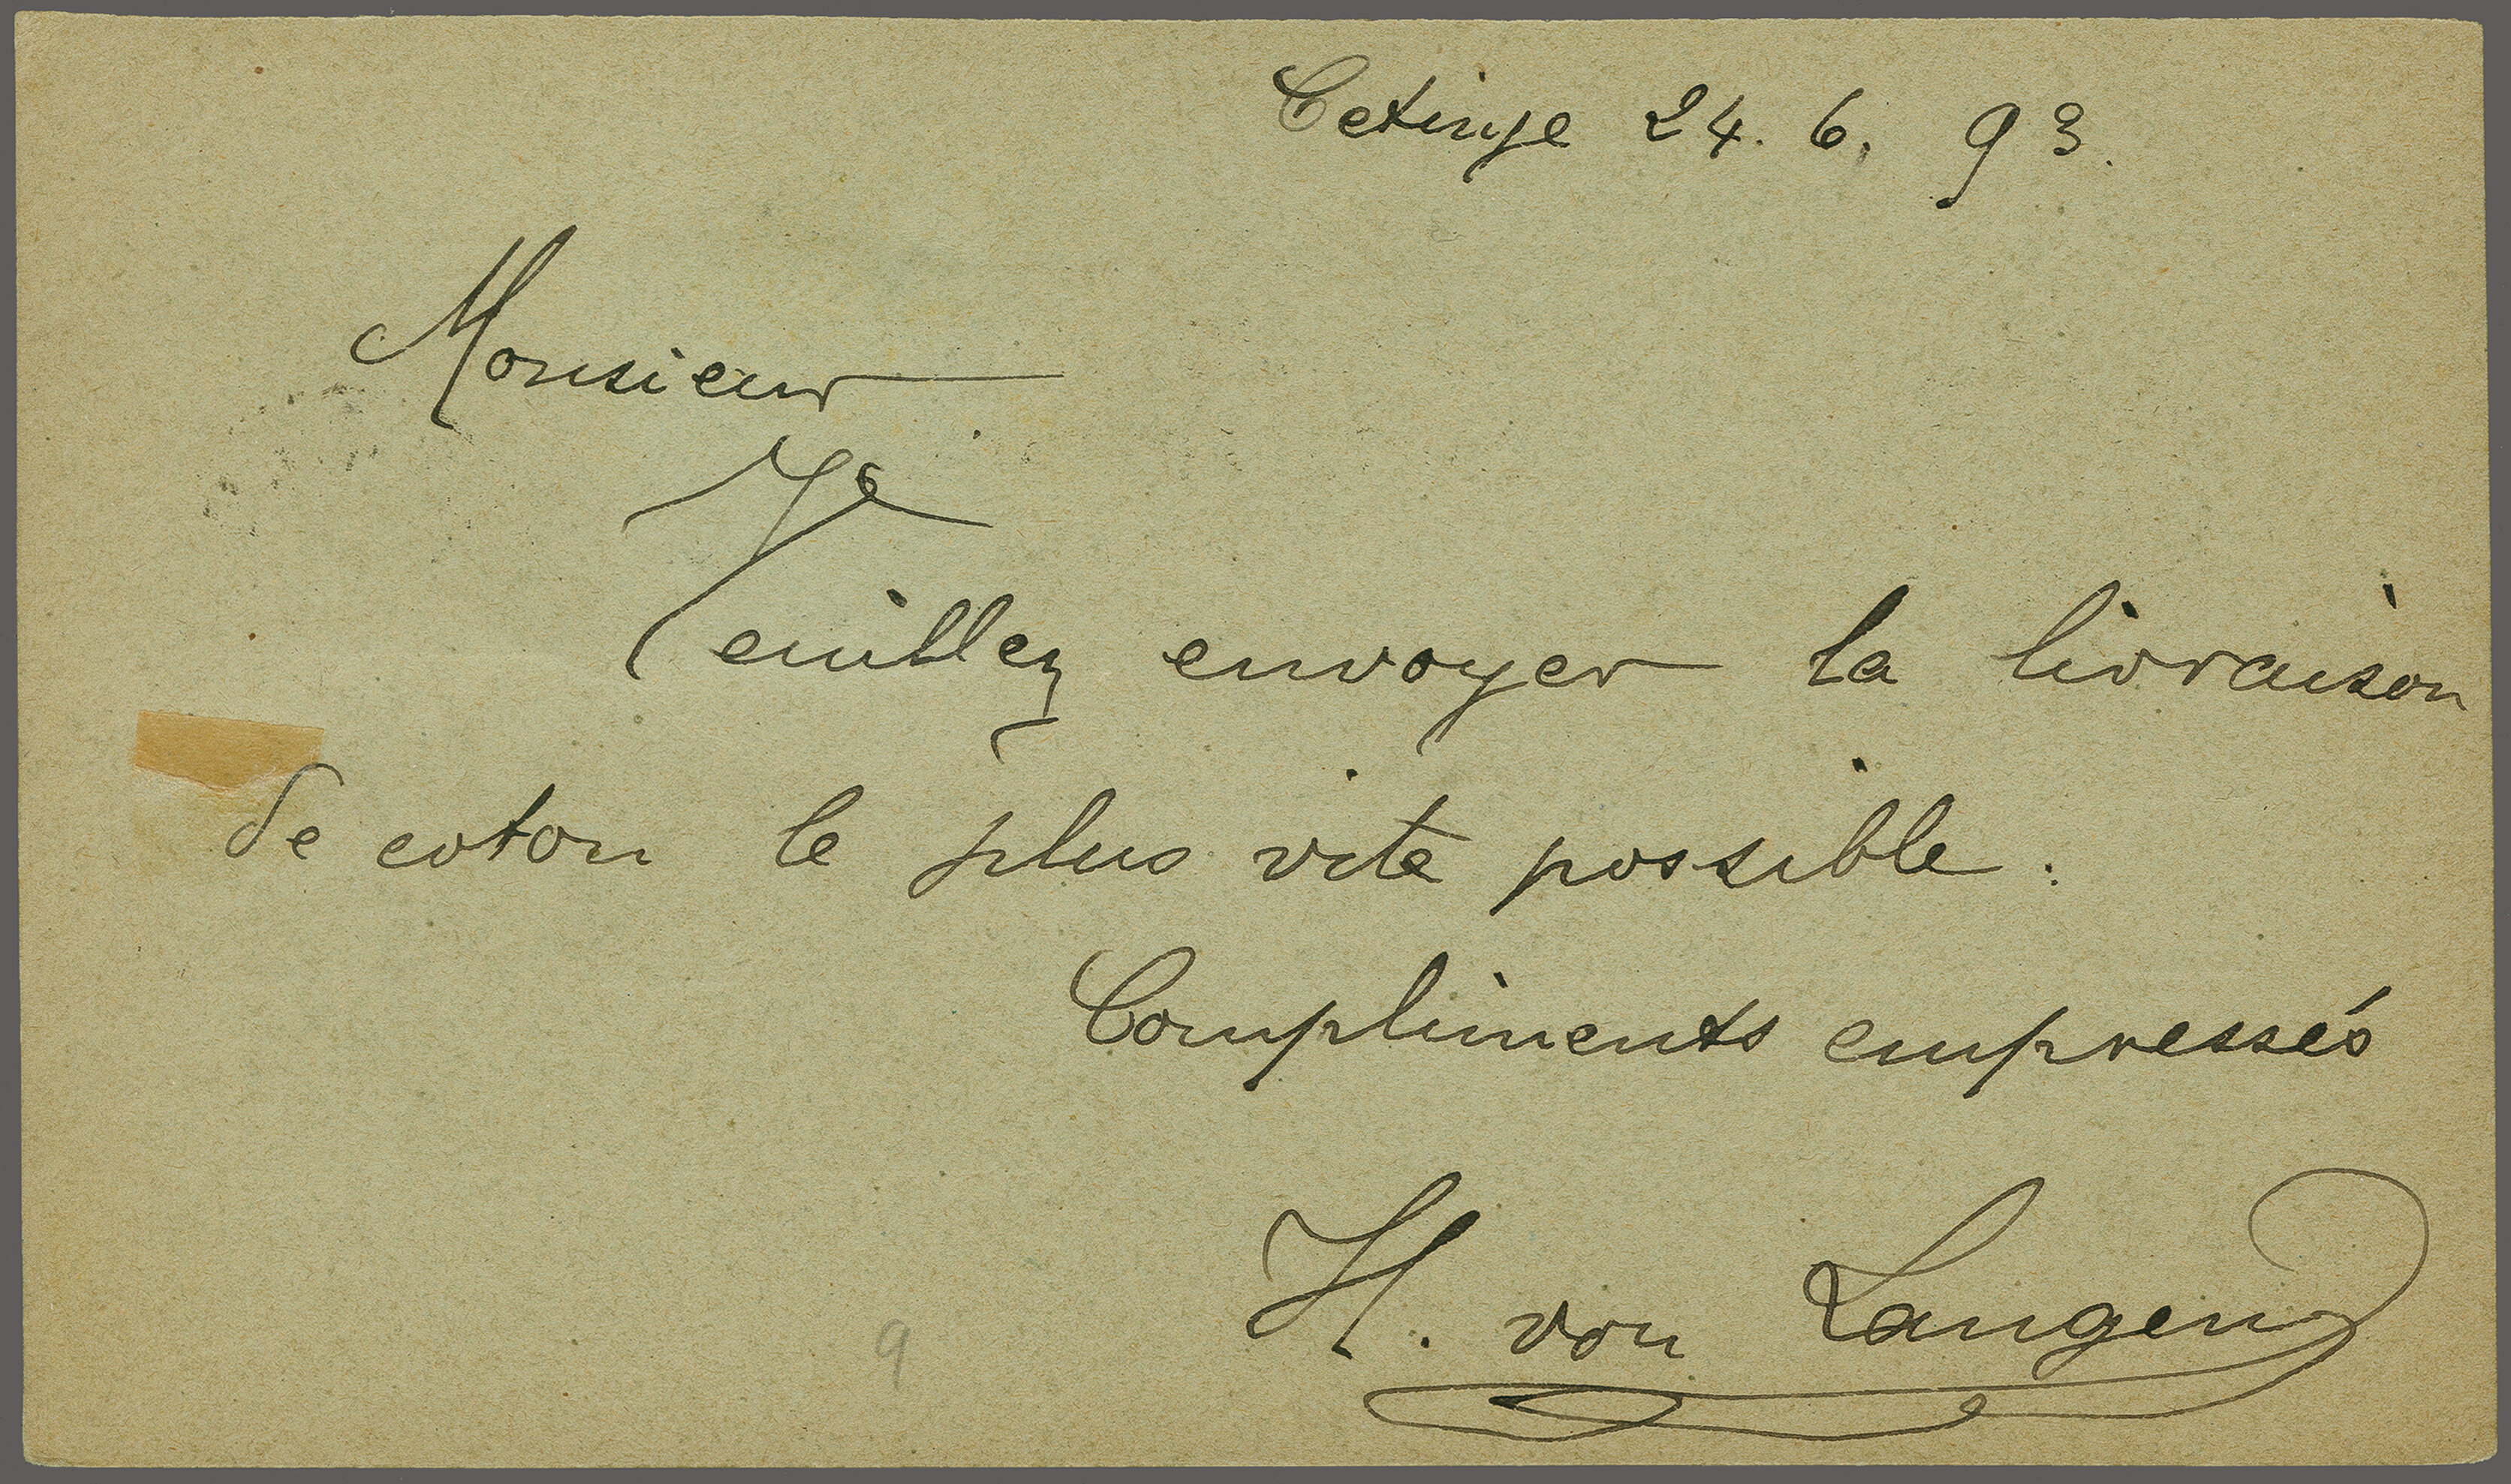 Cetinje 24. 6. 93.
Monsieur
Veuillez envoyer la livraison
de coton le plus vite possible.
Compliments empressés
H. von Langen
9